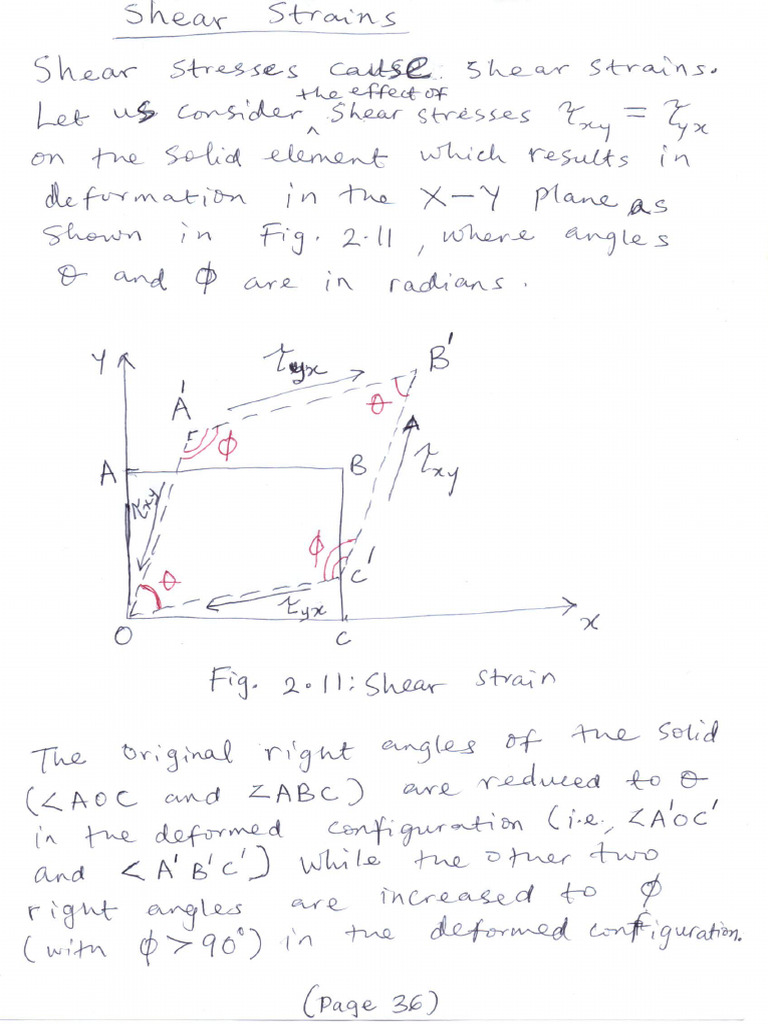 Shear Strains
Shear stresses cause shear strains.
Let us consider the effect of shear stresses τxy = τyx
on the solid element which results in
deformation in the X-Y plane as
shown in Fig. 2.11, where angles
θ and ϕ are in radians.
Y
τyx
B'
A'
θ
ϕ
A
B
τxy
τxy
ϕ
C'
θ
τyx
x
O
C
Fig. 2.11: Shear strain
The original right angles of the solid
(∠AOC and ∠ABC) are reduced to θ
in the deformed configuration (i.e., ∠A'OC'
and ∠A'B'C') while the other two
right angles are increased to ϕ
(with ϕ > 90°) in the deformed configuration.
(Page 36)